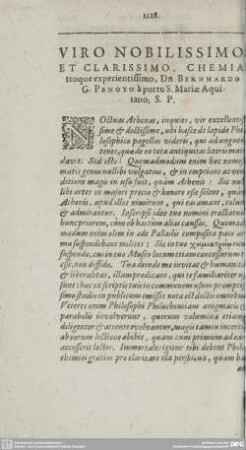 VIRO NOBILISSIMO
ET CLARISSIMO, CHEMIA
troque experientissimo, Dn BERNHARDO
G. PENOTO à portu S. Mariæ Aqui-
tano, S. P.
NOctuas Athenas, inquies, vir excellenti
sime & doctissime, ubi hasce de lapide Phi
losophico pagellas videris, qui ad unguem
tenes, quod de ea tota antiquitas literis man
davit. Sed esto: Quemadmodum enim hoc nomis
matis genus nullibi vulgatius, & in emptione ac ven
ditione magis in usu fuit, quam Athenis: Sic nul
libi artes ex majori precio & honore esse solent, quam
Athenis, apud illos nimirum, qui eas amant, colunt
& admirantur. Inscripsi ideo tuo nomini tractatum
hunc priorem, cùm ob has tùm alias caussas. Quemad
modum enim olim in æde Palladis composita pace ar
ma suspendebant milites: Sic in tuo
suspendo, cui in tuo Musæo locum etiam concessurum
esse, non diffido. Tua deinde me invitat & humanitas
& liberalitas, illam prædicant, qui te familiariter
runt: has ex scriptis tuis in commune usum promptis
simo studio in publicum emissis nota est doctis omnibus
Veteres enim Philosophi Philochemiam ænigmatis &
parabolis involverunt, quorum volumina etiamsi
diligenter & attente evolvantur, magis tamen incertus
ab eorum lectione abibis, quam cum primùm ad eam
accesseris lector. Immortales igitur tibi debent Philo
chemici gratias pro claritate illa perspicua, quam